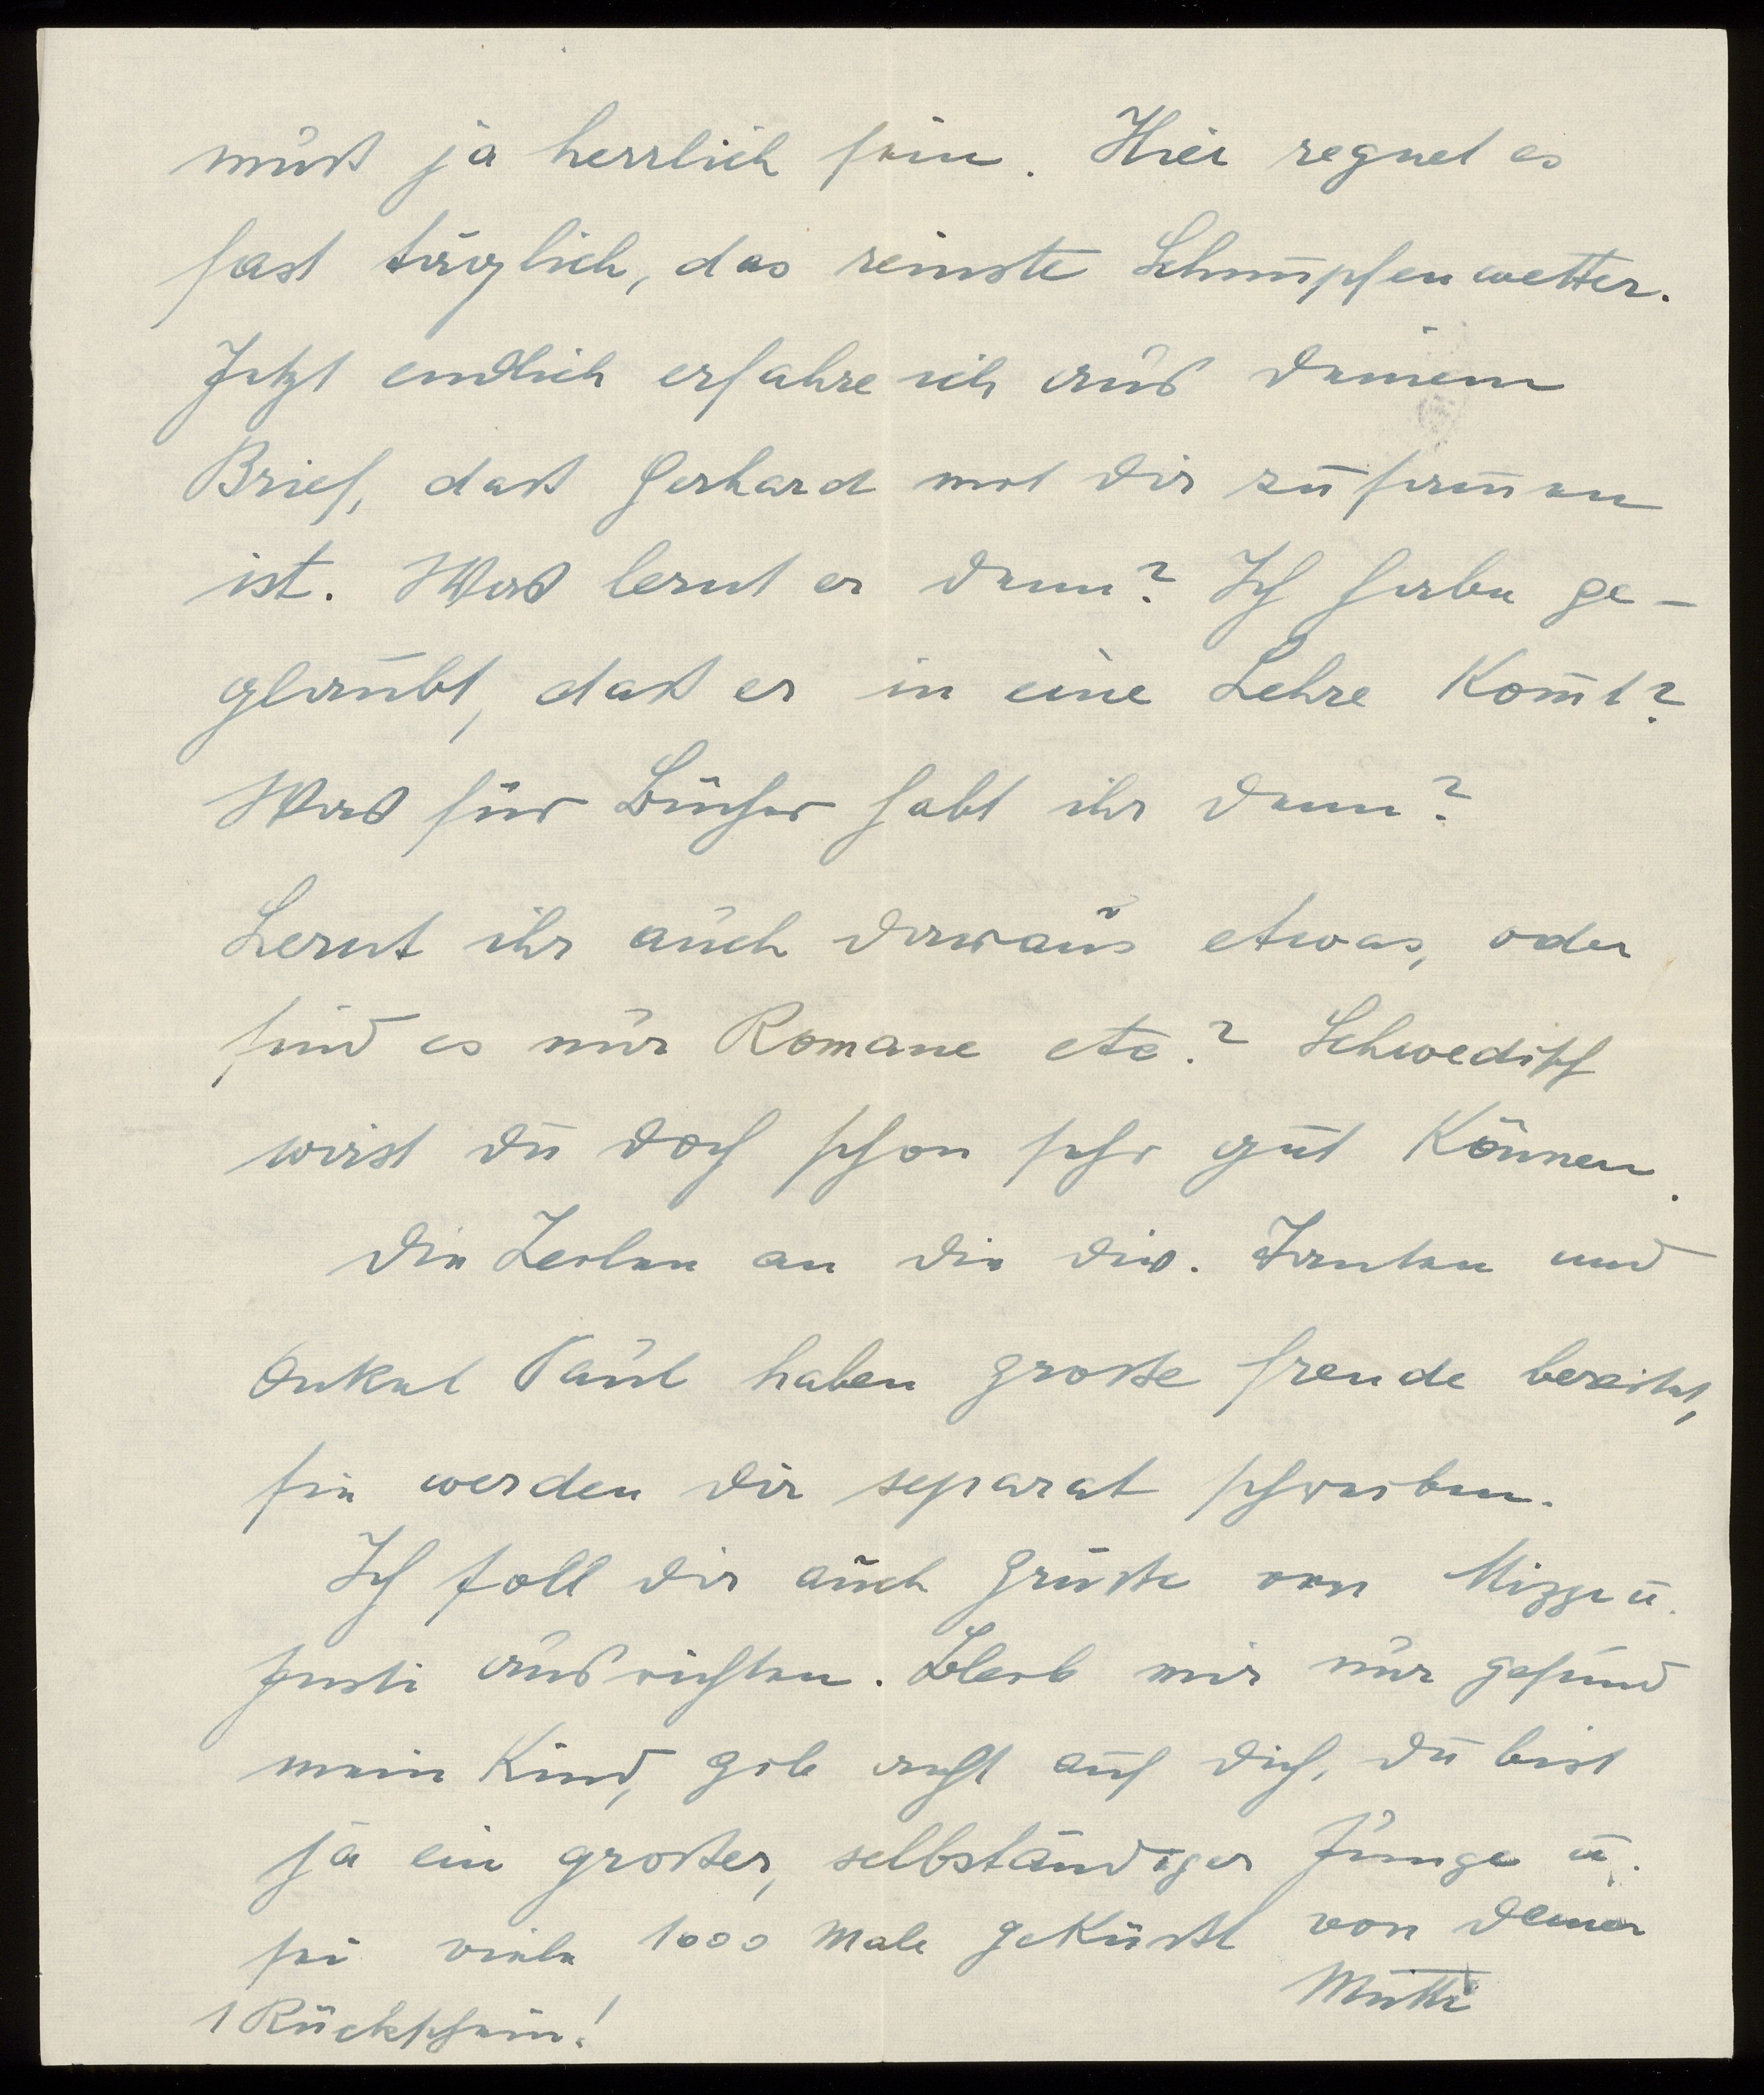 muß ja herrlich sein. Hier regnet es
fast täglich, das reinste Schnupfenwetter.
Jetzt endlich erfahre ich aus deinem
Brief, daß Gerhard mit dir zusam̅en
ist. Was lernt er denn? Ich habe ge-
glaubt, daß er in eine Lehre kom̅t?
Was für Bücher habt ihr denn?
Lernt ihr auch daraus etwas, oder
sind es nur Romane etc.? Schwedisch
wirst du doch schon sehr gut können.
Die Zeilen an die div. Tanten und
Onkel Paul haben große Freude bereitet,
sie werden dir separat schreiben.
Ich soll dir auch Grüße von Mizze u.
Justi ausrichten. Bleib mir nur gesund
mein Kind, gib acht auf dich, du bist
ja ein großer, selbständiger Junge u.
sei viele 1000 Male geküßt von deiner
Mutti
1 Rückschein!